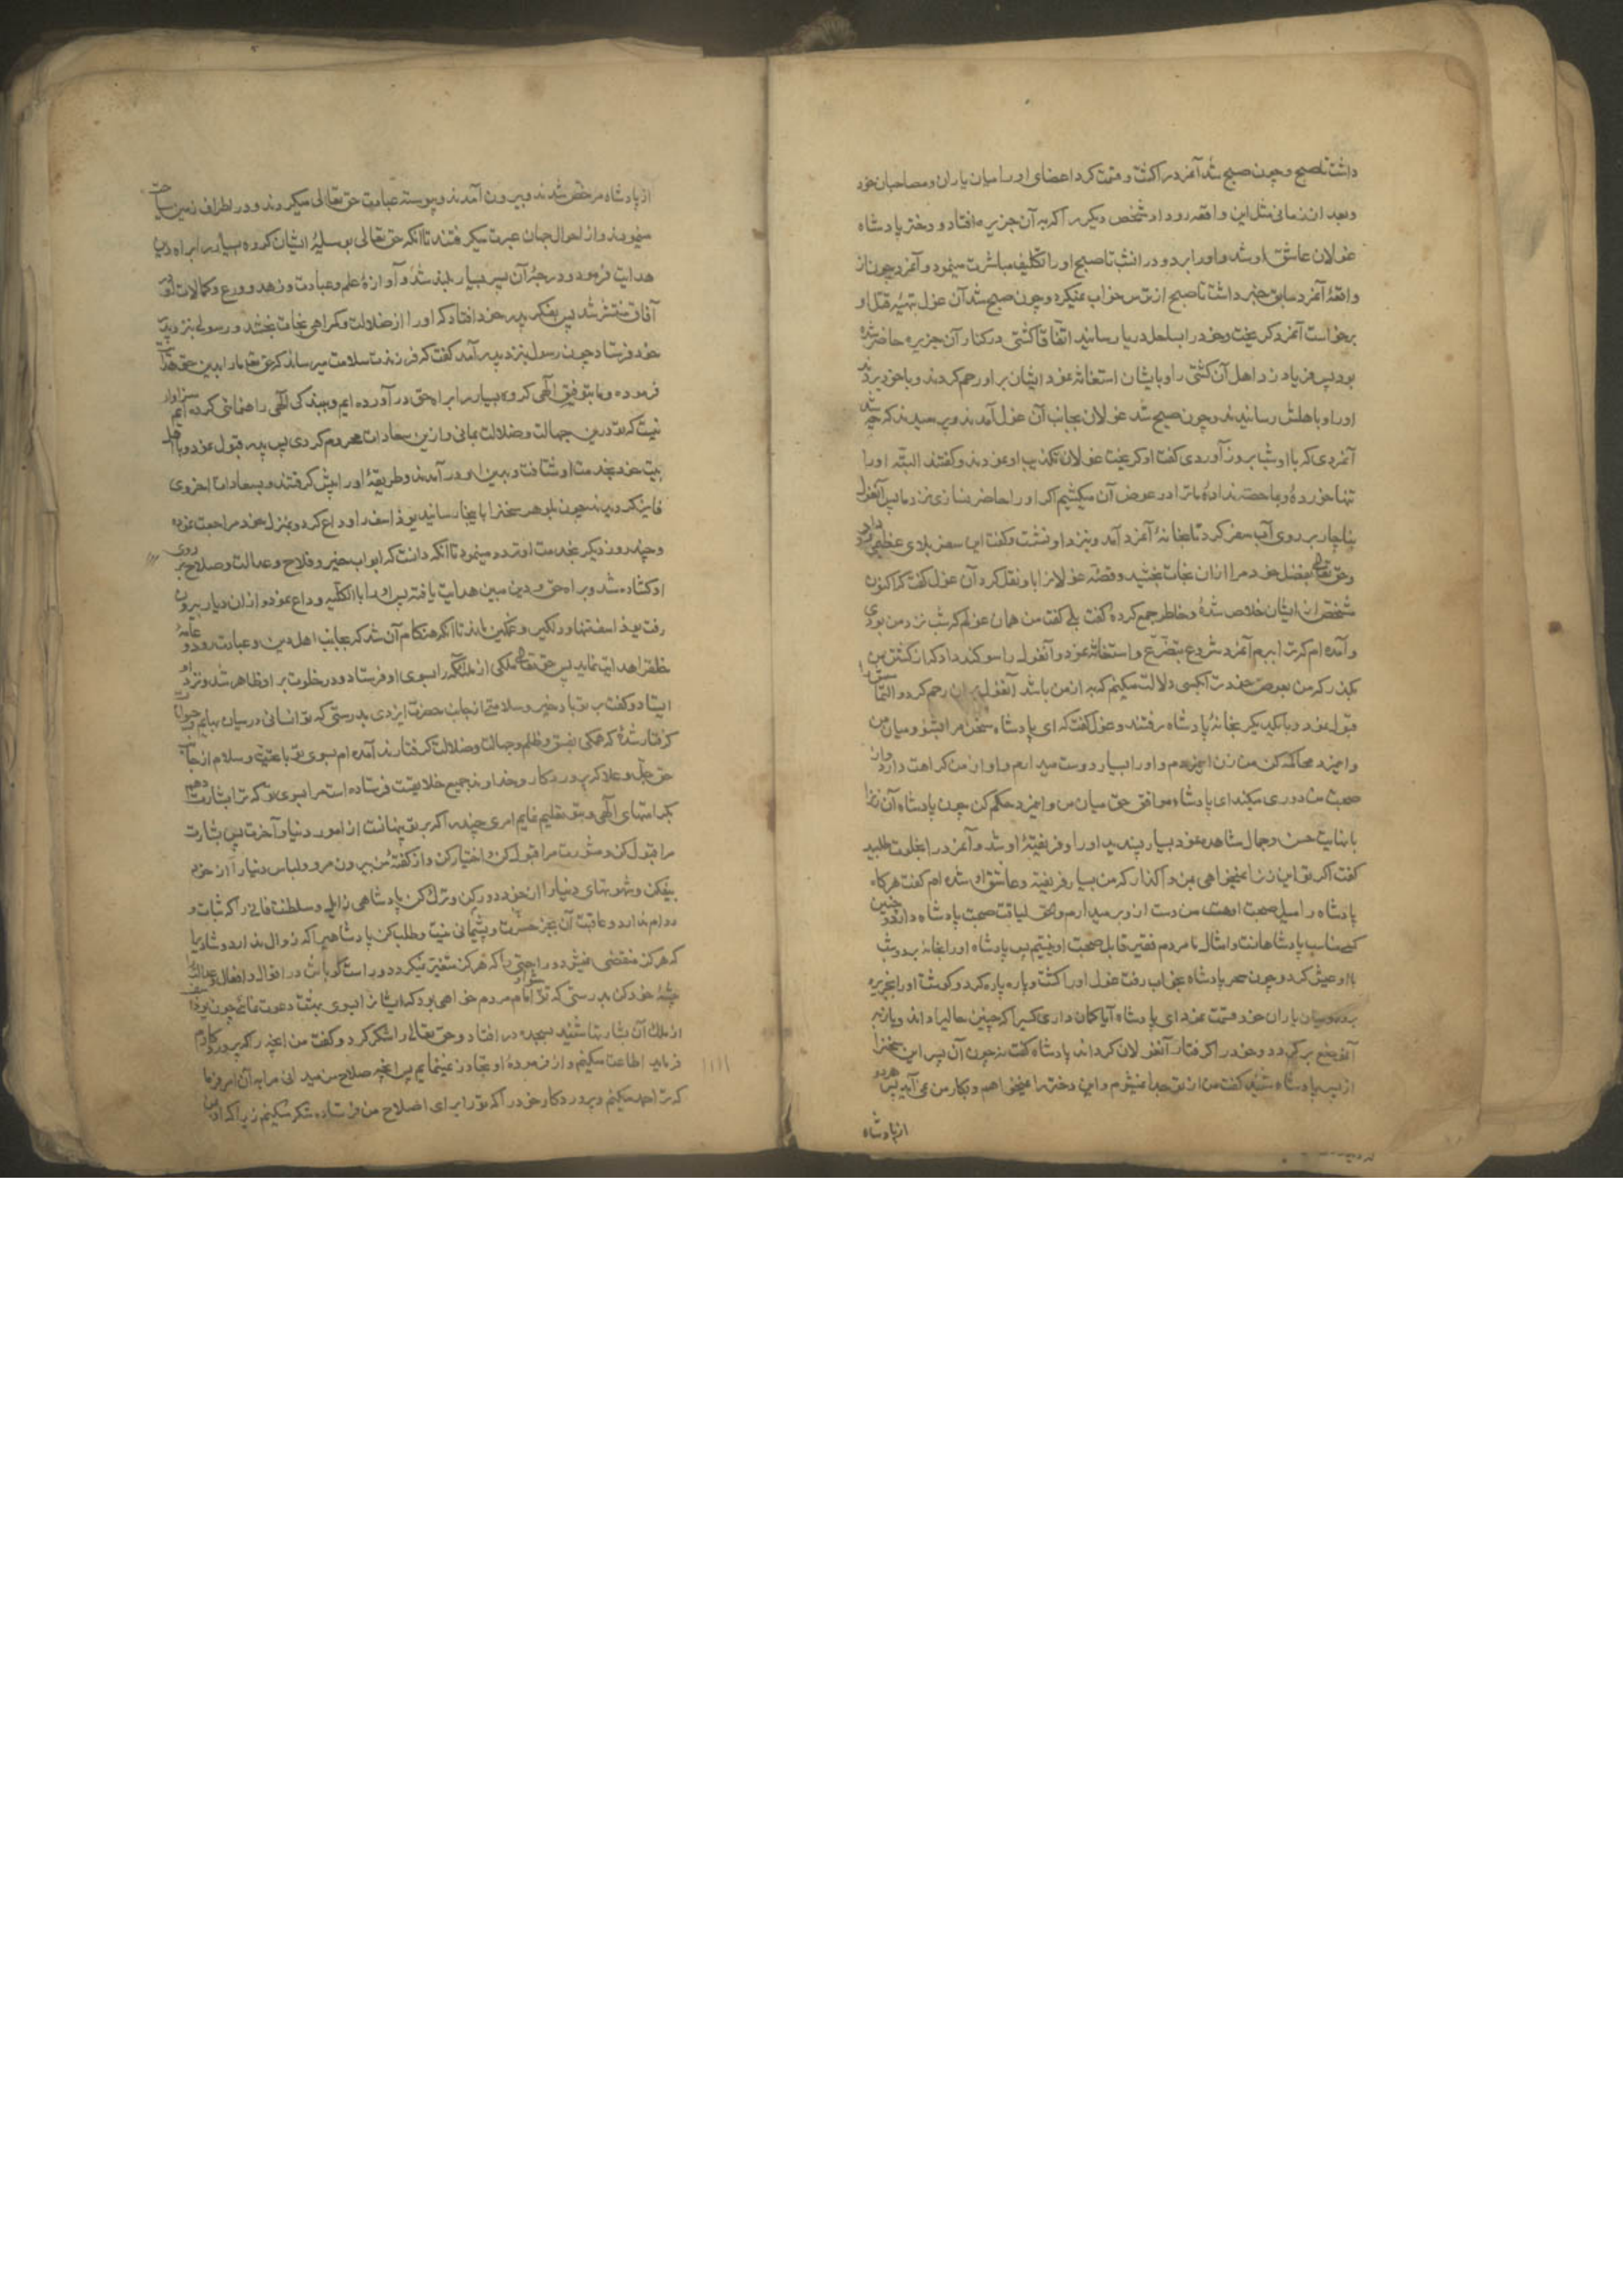 داشت تا صبح و چون صبح شد آنمرد را کشت و قسمت کرد اعضای او را میان یاران و مصاحبان خود
و بعد از زمانی مثل این واقعه رو داد و شخص دیگر را که به آن جزیره افتاد و دختر پادشاه
غولان عاشق او شد و او را برد و در آنشب تا صبح او را تکلیف مباشرت مینمود و آنمرد چون از
واقعهٔ آنمرد سابق خبر داشت تا صبح از ترس خواب نمیکرد و چون صبح شد آن غول تهیهٔ قتل او
برخواست آنمرد گریخت و خود را بساحل دریا رسانید اتفاقا کشتی در کنار آن جزیره حاضر شده
بود پس فریاد زد اهل آن کشتی را و بایشان استغاثه نمود ایشان بر او رحم کردند و با خود بردند
او را و باهلش رسانیدند و چون صبح شد غولان بجانب آن غول آمدند و پرسیدند که چه شد
آنمردی که با او شب بروز آوردی گفت او گریخت غولان تکذیب او نمودند و گفتند البته او را
تنها خوردهٔ و بما حصه ندادهٔ ما ترا در عوض آن میکشیم اگر او را حاضر نسازی نزد ما پس آنغول
بناچار بر روی آب سفر کرد تا بخانهٔ آنمرد آمد و بنزد او نشست و گفت این سفر بلای عظیمی
وحق تعالی بفضل خود مرا از آن نجات بخشید و قصهٔ غولانرا با او نقل کرد آن غول گفت که اکنون
مشخص از ایشان خلاص شدهٔ و خاطر جمع کردهٔ گفت بلی گفت من همان غولم که شب نزد من بودی
و آمده ام که ترا ببرم آنمرد شروع بتضرع و استغاثه نمود و آنغول را سوگند داد که از کشتن من
بگذر که من بعوض خود ترا بکسی دلالت میکنم که به از من باشد آنغول بر او رحم کرد و التماس
قبول نمود و با یکدیگر بخانهٔ پادشاه رفتند و غول گفت که ای پادشاه سخن مرا بشنو و میان من
و اینمرد محاکمه کن من زن اینمردم و او را بسیار دوست میدارم و او از من کراهت دارد و از
صحبت من دوری میکند ای پادشاه موافق حق میان من و اینمرد حکم کن چون پادشاه آن زنرا
با نهایت حسن و جمال مشاهده نمود بسیار پسندید او را و فریفتهٔ او شد و آنمرد را بخلوت طلبید
گفت اگر تو این زنرا نمیخواهی بمن واگذار که من بسیار فریفته و عاشق او شده ام گفت هرگاه
پادشاه را میل صحبت او هست من دست از او بر میدارم والحق لیاقت صحبت پادشاه دارد و چنین
کسی مناسب پادشاهانست و امثال ما مردم فقیر قابل صحبت او نیستیم پس پادشاه او را بخانه برد و شب
با او عیش کرد و چون سحر پادشاه بخواب رفت غول او را کشت و پاره پاره کرد و گوشت او را بجزیره
برد و میان یاران خود قسمت نمود ای پادشاه آیا گمان داری کسیرا که چنین حالیرا داند و باز به
آنموضع برگردد و خود را گرفتار آنغولان گرداند پادشاه گفت نه چون آن پسر این سخنرا
از پسر پادشاه شنید گفت من از تو جدا نمیشوم و این دختر را نمیخواهم و بکار من نمی آید پس هر دو
از پادشاه
از پادشاه مرخص شدند و بیرون آمدند و پیوسته عبادت حق تعالی میکردند و در اطراف زمین سیاحت
مینمودند و از احوال جهان عبرت میگرفتند تا آنکه حق تعالی بوسیلهٔ ایشان گروه بسیار را براه دین
هدایت فرمود و درجهٔ آن پسر بسیار بلند شد و آوازهٔ علم و عبادت و زهد و ورع و کمالات او در
آفاق منتشر شد پس بفکر پدر خود افتاد که او را از ضلالت و گمراهی نجات بخشد و رسولی بنزد پدر
خود فرستاد چون رسول بنزد پدر آمد گفت که فرزندت سلامت میرساند که حق تعالی ما را بدین حق هدایت
فرموده و ما بتوفیق الهی گروه بسیار را براه حق در آورده ایم و ببندگی الهی راهنمائی کرده ایم سزاوار
نیست که تو درین جهالت و ضلالت بمانی و ازین سعادات محروم گردی پس پدر قبول نمود و با اهل
بیت خود بخدمت او شتافت و بدین او در آمدند و طریقهٔ او را پیش گرفتند و بسعادات اخروی
فایز گردیدند چون بلوهر سخنرا باینجا رسانید یوذاسف را وداع کرد و بمنزل خود مراجعت نمود
و چند روز دیگر بخدمت او تردد مینمود تا آنکه دانست که ابواب خیر و فلاح و عدالت و صلاح بر روی
او گشاده شد و براه حق و دین مبین هدایت یافته پس او را بالکلیه وداع نمود و از آن دیار بیرون
رفت یوذاسف تنها و دلگیر و غمگین ماند تا آنکه هنگام آن شد که بجانب اهل دین و عبادت رود و عامهٔ
خلق را هدایت نماید پس حق تعالی ملکی از ملائکه را بسوی او فرستاد و در خلوت بر او ظاهر شد و نزد او
ایستاد و گفت بر تو باد خیر و سلامتی از جانب حضرت ایزدی بدرستی که تو انسانی در میان بهایم و حیوانات
گرفتار شدهٔ که همگی بفسق و ظلم و جهالت و ضلالت گرفتارند آمده ام بسوی تو با تحیت و سلام از جانب
حق جل و علا که پروردگار و خداوند جمیع خلایقست فرستاده است مرا بسوی تو که ترا بشارت دهم
بکرامتهای الهی و بتو تعلیم نمایم امری چند را که بر تو پنهانست از امور دنیا و آخرت پس بشارت
مرا قبول کن و مشورت مرا قبول کن و اختیار کن و از گفتهٔ من بیرون مرو و لباس دنیا را از خود
بیفکن و شهوتهای دنیا را از خود دور کن و ترک کن پادشاهی زایل و سلطنت فانی را که ثبات و
دوام ندارد و عاقبت آن بجز حسرت و پشیمانی نیست و طلب کن پادشاهیرا که زوال ندارد و شادیرا
که هرگز منقضی نمیشود و راحتی را که هرگز متغیر نمیگردد و راستگو باش در اقوال و افعال و عدالت
پیشهٔ خود کن بدرستی که تو امام و پیشوای مردم خواهی بود که ایشانرا بسوی بهشت دعوت نمائی چون یوذاسف
از ملک آن بشارتها شنید بسجده در افتاد و حق تعالی را شکر کرد و گفت من آنچه را که پروردگارم
فرماید اطاعت میکنم و از فرمودهٔ او تجاوز نمینمایم پس آنچه صلاح من میدانی مرا به آن امر فرما
که ترا حمد میکنم و پروردگار خود را که تو را برای اصلاح من فرستاده شکر میکنم زیرا که او بر من